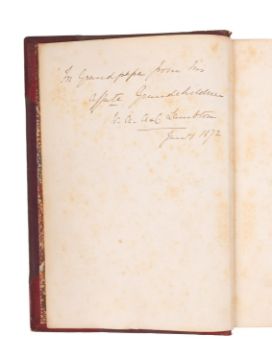 To Grandpapa from his
affecte Grandchildren
F. A. and C Lambton
Jany 1872